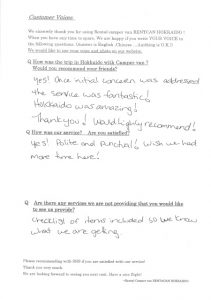 Customer Voices
We sincerely thank you for using Rental camper van RENTCAN HOKKAIDO !
When you have any time to spare. We are happy if you write YOUR VOICE to
the following questions. Answer is English ,Chinese ....Anything is O.K.!!
We would like to use your name and photo on our website.
Q How was the trip in Hokkaido with Camper van ?
Would you recommend your friends?
Yes! Once initial concern was addressed
the service was fantastic!
Hokkaido was amazing!
Thank you! Would highly recommend!
Q How was our service? Are you satisfied?
Yes! Polite and punctual! Wish we had
more time here!
Q Are there any services we are not providing that you would like
to see us provide?
Checklist of items included so we know
what we are getting.
Please recommending with SNS if you are satisfied with our service!
Thank you very much.
We are looking forward to seeing you next trip. Have a nice flight!
Rental Camper van RENTACAN HOKKAIDO